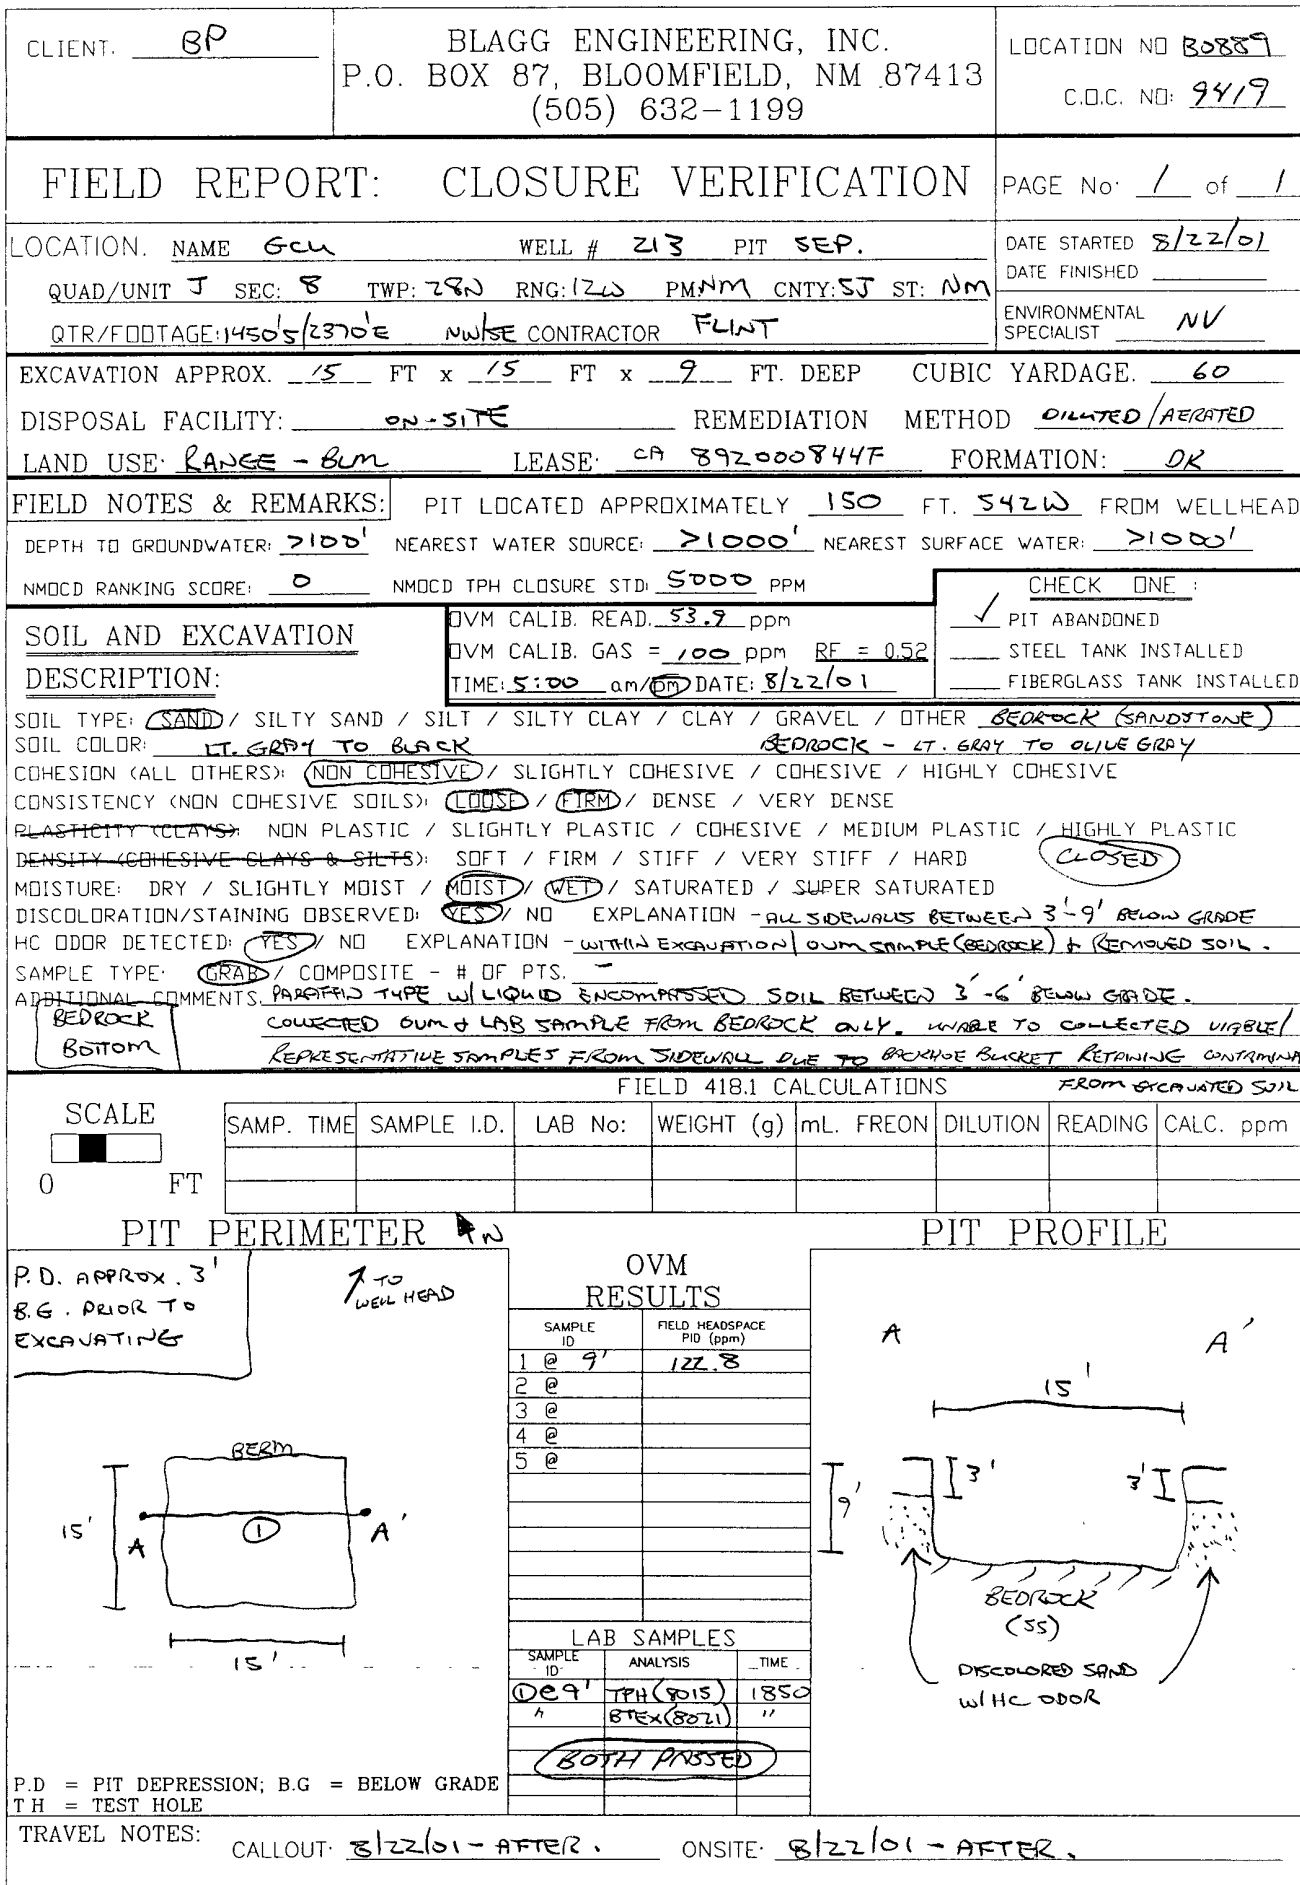 CLIENT. BP
BLAGG ENGINEERING, INC.
P.O. BOX 87, BLOOMFIELD, NM 87413
(505) 632-1199
LOCATION NO B0889
C.O.C. NO: 9419
FIELD REPORT: CLOSURE VERIFICATION
PAGE No. 1 of 1
LOCATION. NAME GCU WELL # 213 PIT SEP.
QUAD/UNIT J SEC: 8 TWP: 28N RNG: 12W PM: NM CNTY: SJ ST: NM
QTR/FOOTAGE: 1450'S/2370'E NW/SE CONTRACTOR FLINT
DATE STARTED 8/22/01
DATE FINISHED
ENVIRONMENTAL SPECIALIST NV
EXCAVATION APPROX. 15 FT x 15 FT x 9 FT. DEEP CUBIC YARDAGE. 60
DISPOSAL FACILITY: ON-SITE REMEDIATION METHOD DILUTED/AERATED
LAND USE: RANGE - BLM LEASE: CA 892000844F FORMATION: DK
FIELD NOTES & REMARKS: PIT LOCATED APPROXIMATELY 150 FT. S42W FROM WELLHEAD
DEPTH TO GROUNDWATER: >100' NEAREST WATER SOURCE: >1000' NEAREST SURFACE WATER: >1000'
NMOCD RANKING SCORE: 0 NMOCD TPH CLOSURE STD: 5000 PPM
CHECK ONE :
✓ PIT ABANDONED
STEEL TANK INSTALLED
FIBERGLASS TANK INSTALLED
SOIL AND EXCAVATION
DESCRIPTION:
OVM CALIB. READ. 53.9 ppm
OVM CALIB. GAS = 100 ppm RF = 0.52
TIME: 5:00 am/pm DATE: 8/22/01
SOIL TYPE: SAND / SILTY SAND / SILT / SILTY CLAY / CLAY / GRAVEL / OTHER BEDROCK (SANDSTONE)
SOIL COLOR: LT. GRAY TO BLACK BEDROCK - LT. GRAY TO OLIVE GRAY
COHESION (ALL OTHERS): NON COHESIVE / SLIGHTLY COHESIVE / COHESIVE / HIGHLY COHESIVE
CONSISTENCY (NON COHESIVE SOILS): LOOSE / FIRM / DENSE / VERY DENSE
PLASTICITY (CLAYS): NON PLASTIC / SLIGHTLY PLASTIC / COHESIVE / MEDIUM PLASTIC / HIGHLY PLASTIC
DENSITY (COHESIVE CLAYS & SILTS): SOFT / FIRM / STIFF / VERY STIFF / HARD CLOSED
MOISTURE: DRY / SLIGHTLY MOIST / MOIST / WET / SATURATED / SUPER SATURATED
DISCOLORATION/STAINING OBSERVED: YES / NO EXPLANATION - ALL SIDEWALLS BETWEEN 3'-9' BELOW GRADE
HC ODOR DETECTED: YES / NO EXPLANATION - WITHIN EXCAVATION, OVM SAMPLE (BEDROCK) & REMOVED SOIL.
SAMPLE TYPE: GRAB / COMPOSITE - # OF PTS. -
ADDITIONAL COMMENTS. PARAFFIN TYPE W/ LIQUID ENCOMPASSED SOIL BETWEEN 3'-6' BELOW GRADE.
COLLECTED OVM & LAB SAMPLE FROM BEDROCK ONLY. UNABLE TO COLLECTED VIABLE/
REPRESENTATIVE SAMPLES FROM SIDEWALL DUE TO BACKHOE BUCKET RETAINING CONTAMINA
FROM EXCAVATED SOIL
BEDROCK
BOTTOM
FIELD 418.1 CALCULATIONS
SCALE
0 FT
SAMP. TIME SAMPLE I.D. LAB No: WEIGHT (g) mL. FREON DILUTION READING CALC. ppm
PIT PERIMETER N
P.D. APPROX. 3'
B.G. PRIOR TO
EXCAVATING
TO
WELL HEAD
BERM
15'
A ① A'
15'
P.D = PIT DEPRESSION; B.G = BELOW GRADE
T H = TEST HOLE
OVM
RESULTS
SAMPLE ID FIELD HEADSPACE PID (ppm)
1 @ 9' 122.8
2 @
3 @
4 @
5 @
LAB SAMPLES
SAMPLE ID ANALYSIS TIME
①@9' TPH (8015) 1850
" BTEX (8021) "
BOTH PASSED
PIT PROFILE
A A'
15'
3' 3'
9'
BEDROCK
(SS)
DISCOLORED SAND
W/ HC ODOR
TRAVEL NOTES: CALLOUT: 8/22/01 - AFTER. ONSITE: 8/22/01 - AFTER.